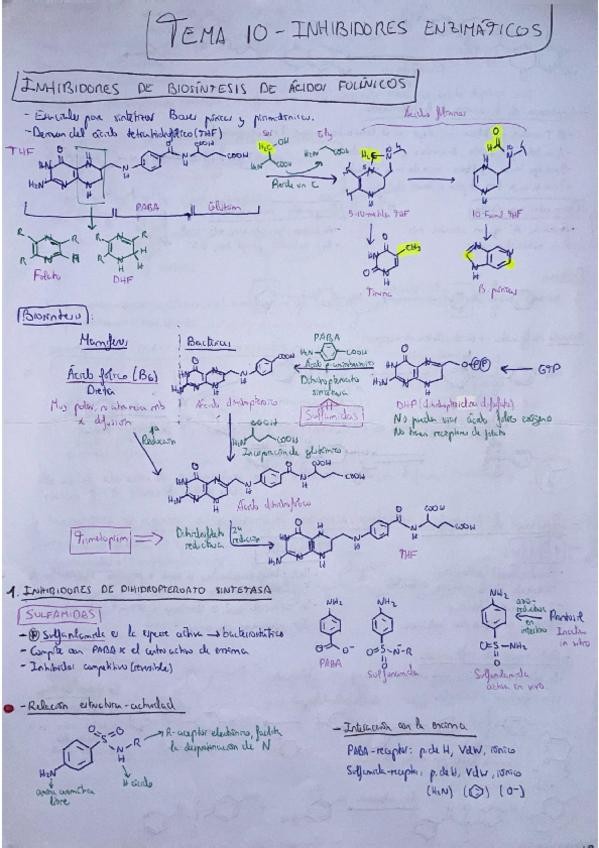 TEMA 10 - INHIBIDORES ENZIMÁTICOS
INHIBIDORES DE BIOSÍNTESIS DE ÁCIDOS FOLÍNICOS
- Esenciales para sintetizar Bases púricas y pirimidínicas.
- Derivan del ácido tetrahidrofólico (THF)
Ácidos folínicos
THF
Ser
Gly
Pierde un C
PABA
Glutám
5-10-metilen THF
10-Formil THF
Folato
DHF
Timina
B. púricas
Biosíntesis:
Mamíferos
Bacterias
PABA
Ácido fólico (B6)
Dieta
Muy polar, no atraviesa mb
x difusión
Ácido dihidropteroico
Ácido p-aminobenzoico
Dihidropteroato
sintetasa
Sulfamidas
GTP
No pueden usar ácido fólico exógeno
No tienen receptores de folato
1ª
Reducción
Incorporación de glutámico
Ácido dihidrofólico
Trimetoprim
Dihidrofolato
reductasa
2ª
reducción
THF
1. INHIBIDORES DE DIHIDROPTEROATO SINTETASA
SULFAMIDAS
- Sulfanilamida es la especie activa → bacteriostático
- Compite con PABA x el centro activo de enzima
- Inhibidor competitivo (reversible)
PABA
Sulfonamida
Sulfanilamida
activa in vivo
azo-
reductasas
en
intestino
Prontosil
Inactivo
in vitro
- Relación estructura-actividad
R-aceptor electrónico, facilita
la desprotonación de N
H ácido
amina aromática
libre
- Interacción con la enzima
PABA-receptor: p. de H, VdW, iónico
Sulfamida-receptor: p. de H, VdW, iónico
(H₂N) (O⁻)